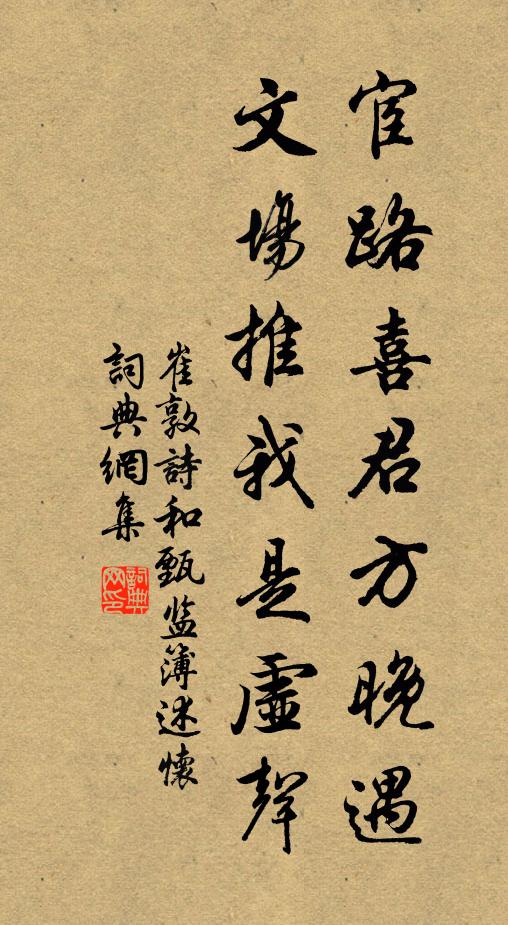 宦路喜君方晚遇
文場推我是虛聲
崔敦詩和甄監簿述懷
詞典網集
詞典网印